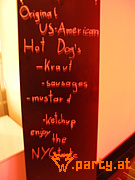 Original
US-American
Hot Dog's
-Kraut
-sausages
-mustard
-ketchup
enjoy
the
party.at